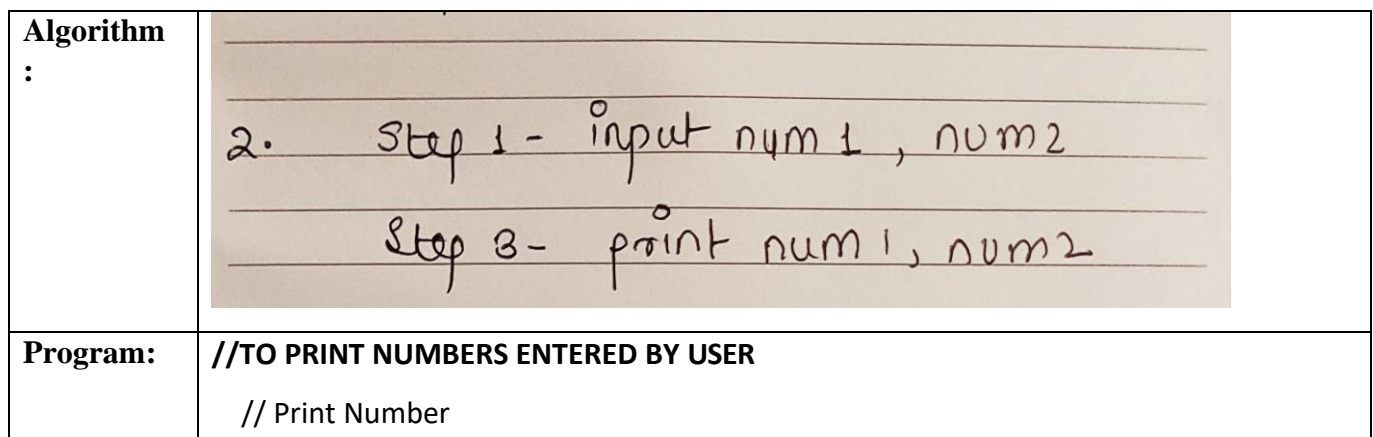 Algorithm
:
2. Step 1 - input num 1, num2
Step 3 - print num 1, num2
Program:
//TO PRINT NUMBERS ENTERED BY USER
// Print Number